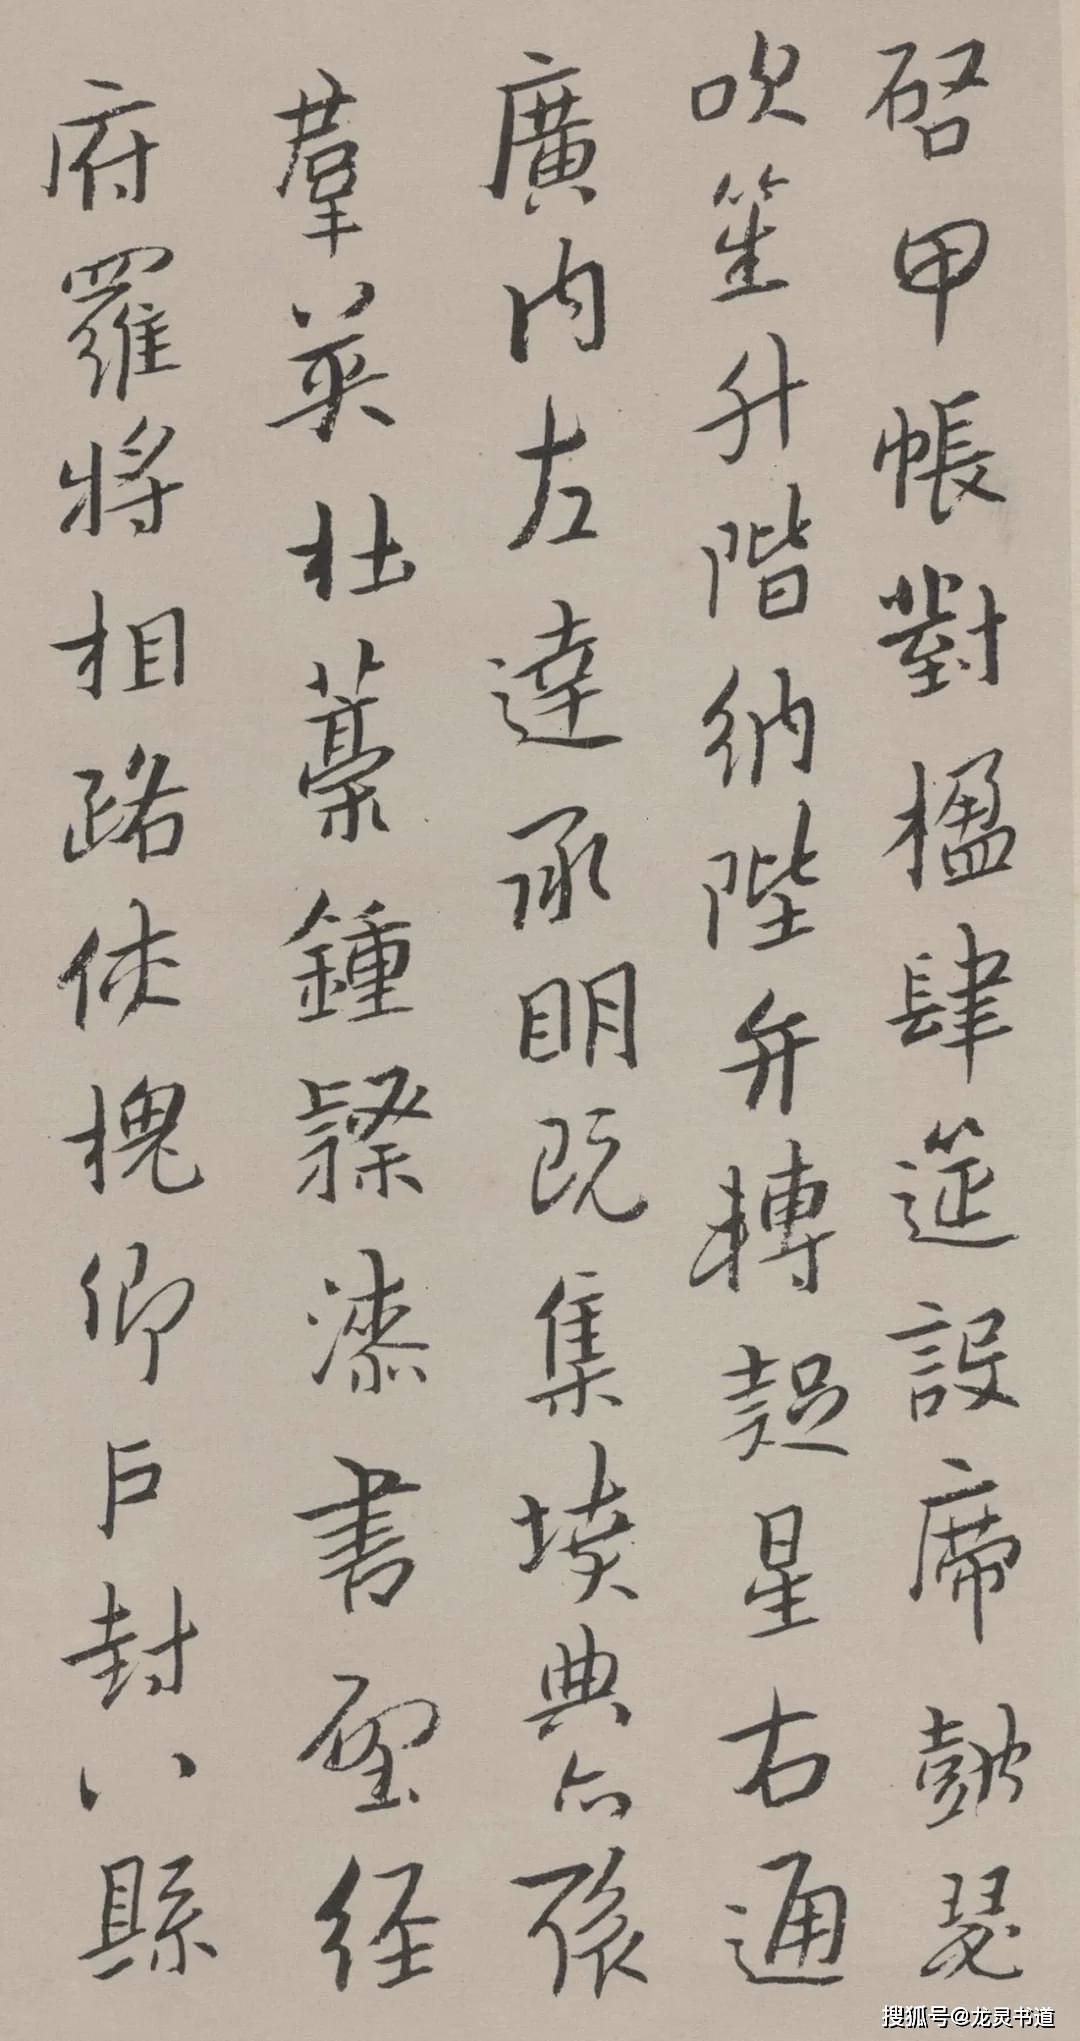 启甲帳對楹肆筵設席鼓瑟
吹笙升階納陛弁轉疑星右通
廣内左達承明既集墳典亦聚
羣英杜藁鍾隸漆書壁経
府羅將相路俠槐卿户封八縣
搜狐号@龙灵书道